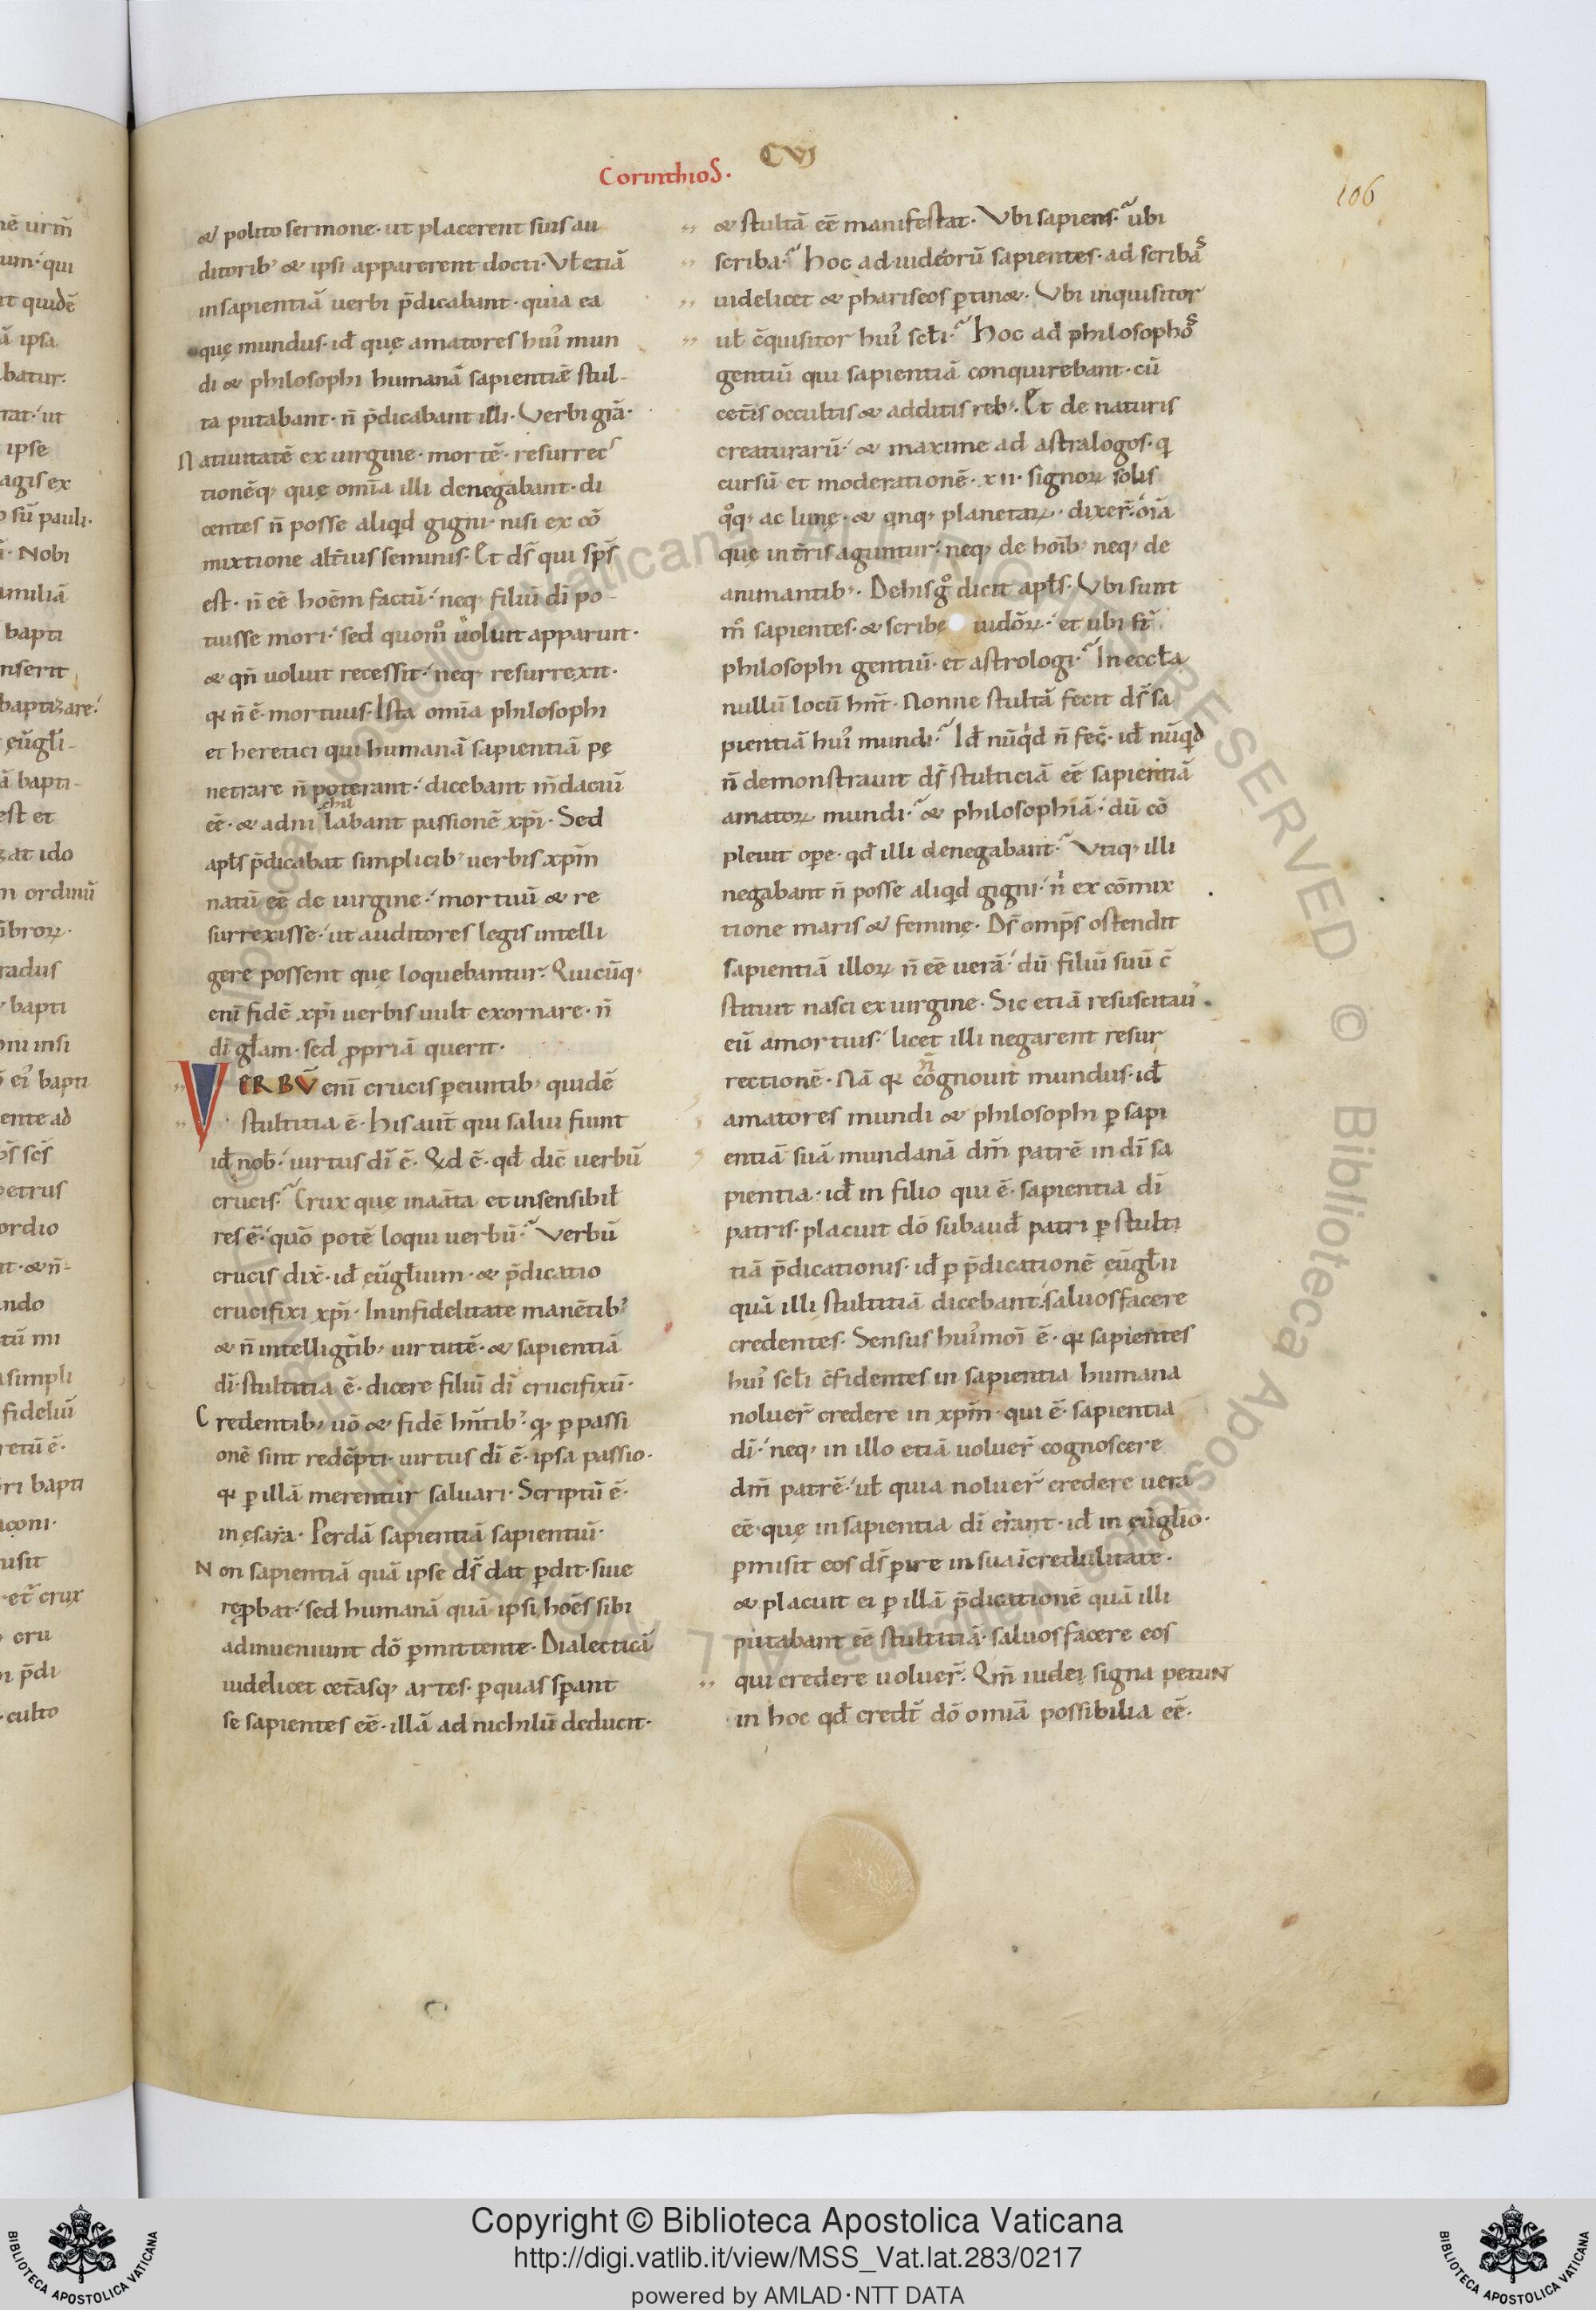 CVI
Corinthios.
106
& polito sermone. ut placerent suis au
ditorib; & ipsi apparerent docti. Vł etiā
in sapientiā uerbi p̄dicabant. quia ea
quę mundus. id̄ quę amatores hui᾽ mun
di & philosophi humanā sapientiæ stul-
ta putabant. n̄ p̄dicabant illi. Verbi grā.
Natiuitatē ex uirgine. mortē. resurrec
tionēq; quę om̄ia illi denegabant. di
centes n̄ posse aliqd gigni. nisi ex cō
mixtione alt̄ius seminis. Et ds̄ qui sps̄
est. n̄ eē hoēm factū. neq; filiū dī po-
tuisse mori. sed quom̊ uoluit apparuit.
& qn̄ uoluit recessit. neq; resurrexit.
qꝛ n̄ ē. mortuus. Ista om̄ia philosophi
et heretici qui humanā sapientiā pę
netrare n̄ poterant. dicebant m̄daciū
eē. & adni chi labant passionē xpī. Sed
apłs p̄dicabat simplicib; uerbis xpm̄
natū eē de uirgine. mortuū & re
surrexisse. ut auditores legis intelli
gere possent quę loquebantur. Quicūq;
eni᷑ fidē xpī uerbis uult exornare. n̄
dī głam. sed ꝓpriā querit.
VERBV̄ eni᷑ crucis ꝑeuntib; quidē
stultitia ē. His aut̄ qui salui fiunt
id̄ nob̄. uirtus dī ē. Qd ē. qd̄ dic̄ uerbū
crucis. Crux que inaāta et insensibił
res ē. quō potē loqui uerbū. Verbū
crucis dix̄. id̄ eūgłium. & p̄dicatio
crucifixi xpī. In infidelitate manētib;
& n̄ intelligt̄ib; uirtutē. & sapientiā
dī. stultitia ē. dicere filiū dī crucifixū.
Credentib; uō & fidē hn̄tib; qꝫ ꝑ passi
onē sint redēpti. uirtus dī ē. ipsa passio.
qꝛ ꝑ illā merentur saluari. Scriptū ē.
in esaia. Perdā sapientiā sapientiū.
Non sapientiā quā ipse ds̄ dat ꝑdit. siue
reꝓbat. sed humanā quā ipsi hoēs sibi
adinueniunt dō ꝑmittente. Dialecticā
uidelicet cet̄asq; artes. ꝑ quas sꝑant
se sapientes eē. illā ad nichilū deducit.
& stultā eē manifestat. Vbi sapiens. ubi
scriba. Hoc ad iudeorū sapientes. ad scribas
uidelicet & phariseos ꝑtin&. Vbi inquisitor
uł c̄quisitor hui᾽ scłi. Hoc ad philosophos
gentiū qui sapientiā conquirebant. cū
cet̄is occultis & additis reb;. Et de naturis
creaturarū. & maxime ad astralogos. q
cursū et moderationē. xii. signoꝝ solis
qͦq; ac lunę. & qnq; planetaꝝ. dixer̄. oīā
quę in t̄ris aguntur. neq; de hoīb; neq; de
animantib;. De his gͦ dicit apłs. Vbi sunt
m̊ sapientes. & scribę iudōꝝ. et ubi st̄
philosophi gentiū. et astrologi. In eccła
nullū locū hn̄t. Nonne stultā fecit ds̄ sa
pientiā hui᾽ mundi. Id̄ nūqd n̄ fec̄. id̄ nūqd
n̄ demonstrauit ds̄ stulticiā eē sapientiā
amatoꝝ mundi. & philosophiā. dū cō
pleuit oꝑe. qd̄ illi denegabant. Vtiq; illi
negabant n̄ posse aliqd gigni. n̄ ex cōmix
tione maris & feminę. Ds̄ omps̄ ostendit
sapientiā illoꝝ n̄ eē uerā. dū filiū suū c̄
stituit nasci ex uirgine. Sic etiā resuscitau᾽
eū a mortuis. licet illi negarent resur
rectionē. Nā qꝛ n̄ cognouit mundus. id̄
amatores mundi & philosophi ꝑ sapi
entiā suā mundanā dm̄ patrē in dī sa
pientia. id̄ in filio qui ē. sapientia dī
patris. placuit dō subaud̄ patri ꝑ stulti
tiā p̄dicationis. id̄ ꝑ p̄dicationē eūgłii
quā illi stultitiā dicebant. saluos facere
credentes. Sensus hui᾽moi᷑ ē. qꝛ sapientes
hui᾽ scłi c̄fidentes in sapientia humana
noluer̄ credere in xpm̄. qui ē. sapientia
dī. neq; in illo etiā uoluer̄ cognoscere
dm̄ patrē. uł quia noluer̄ credere uera
eē. quę in sapientia dī erant. id̄ in eūgłio.
ꝑmisit eos ds̄ ꝑire in sua īcredulitate.
& placuit ei ꝑ illā p̄dicationē quā illi
putabant eē stultitiā. saluos facere eos
qui credere uoluer̄. Qm̄ iudei signa petuN
in hoc qd̄ credt̄ dō omīa possibilia eē.
Copyright © Biblioteca Apostolica Vaticana
http://digi.vatlib.it/view/MSS_Vat.lat.283/0217
powered by AMLAD·NTT DATA
BIBLIOTECA APOSTOLICA VATICANA
BIBLIOTECA APOSTOLICA VATICANA